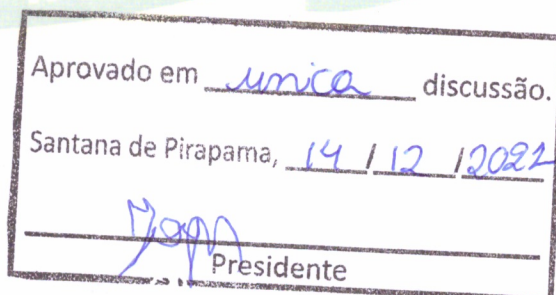 Aprovado em unica discussão.
Santana de Pirapama, 14 / 12 /2021
Presidente